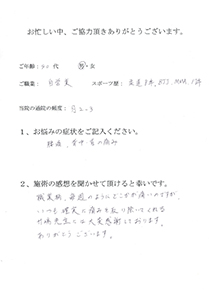 お忙しい中、ご協力頂きありがとうございます。
ご年齢：30代 男・女
ご職業： 自営業 スポーツ歴： 柔道3年、BJJ、MMA 12年
当院の通院の頻度： 月2-3
1、お悩みの症状をご記入ください。
腰痛、背中、首の痛み
2、施術の感想を聞かせて頂けると幸いです。
職業柄、毎週のようにどこか痛いのですが、
いつも確実に痛みを取り除いてくれる
先生には大変感謝しております。
ありがとうございます。